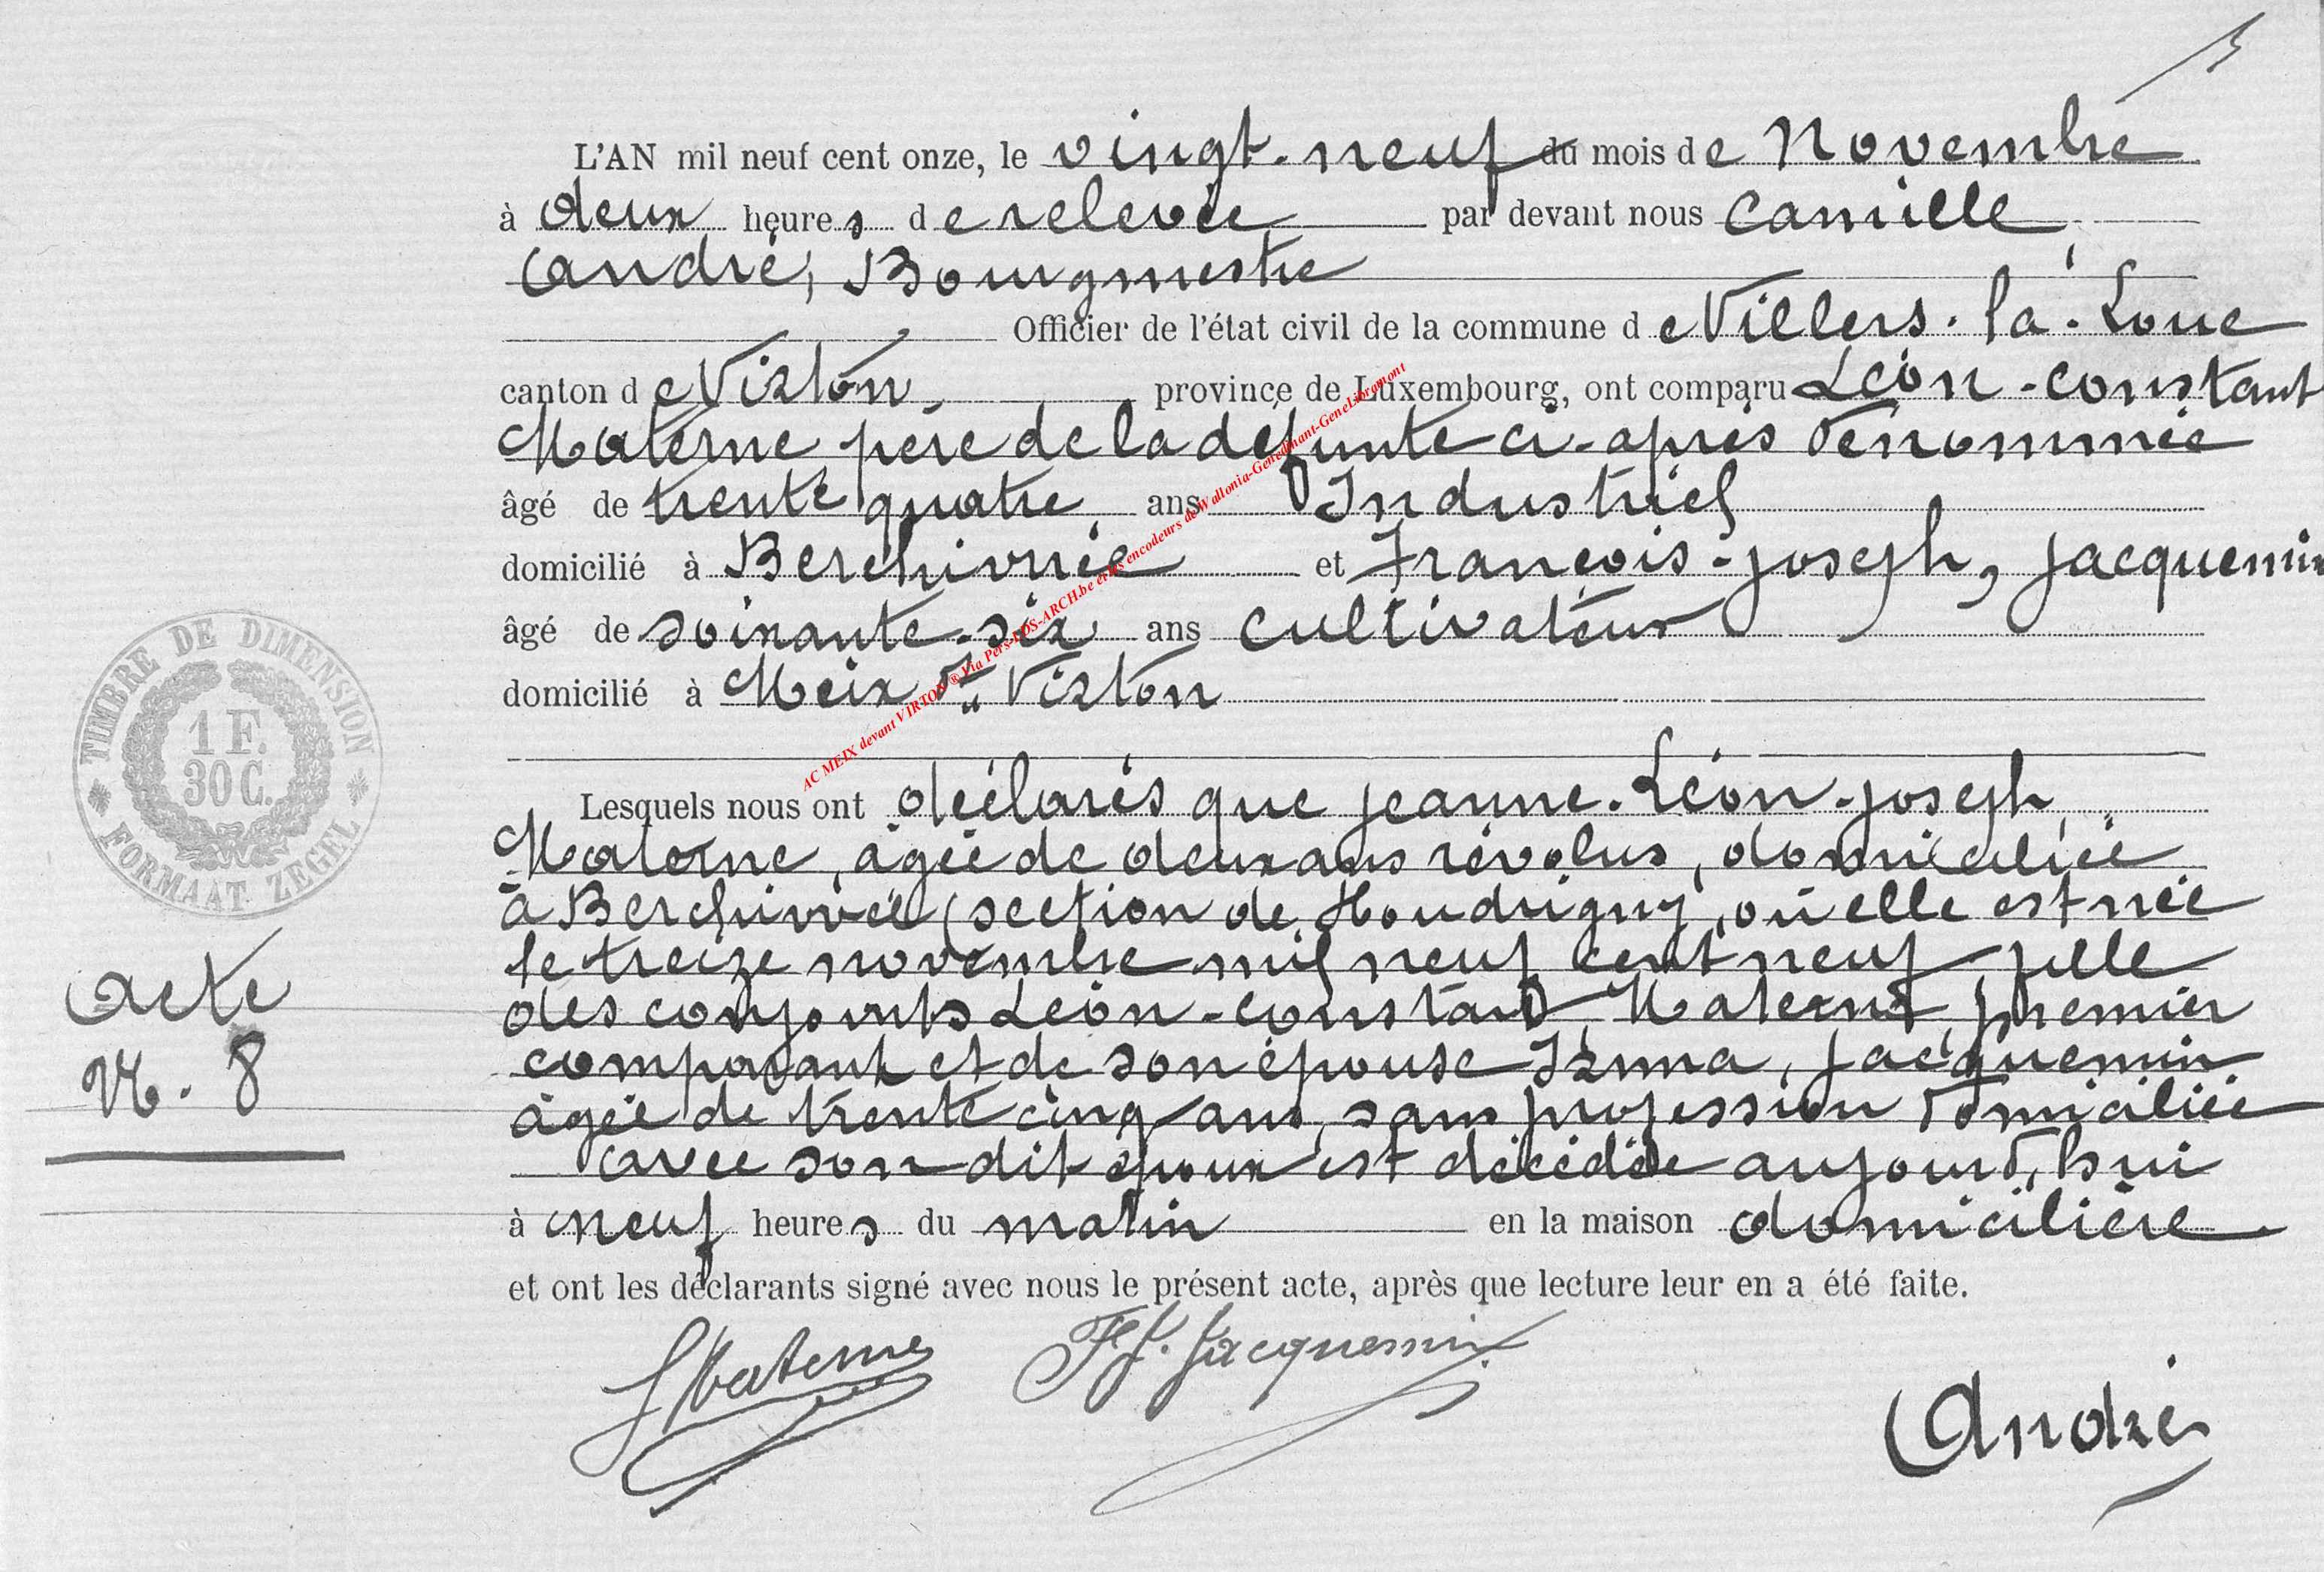 L'AN mil neuf cent onze, le vingt-neuf du mois de Novembre
à deux heures de relevée par devant nous Camille
André, Bourgmestre
Officier de l'état civil de la commune de Villers-la-Loue
canton de Virton province de Luxembourg, ont comparu Léon-Constant
Materne père de la défunte ci-après dénommée
âgé de trente quatre ans Industriel
domicilié à Berchivrée et François-Joseph, Jacquemin
âgé de soixante-six ans cultivateur
domicilié à Meix dt Virton
Lesquels nous ont déclarés que Jeanne-Léon-Joseph
Materne, âgée de deux ans révolus, domiciliée
à Berchivrée (section de Houdrigny, où elle est née
le treize novembre mil neuf cent neuf fille
des conjoints Léon-Constant, Materne, premier
comparant et de son épouse Irma, Jacquemin
âgée de trente cinq ans, sans profession domiciliée
avec son dit époux est décédée aujourd'hui
à neuf heures du matin en la maison domicilière
et ont les déclarants signé avec nous le présent acte, après que lecture leur en a été faite.
LMaterne FJ. Jacquemin
André
acte
N°. 8
TIMBRE DE DIMENSION
1 F.
30 C.
FORMAAT ZEGEL
AC MEIX devant VIRTON ® Via Pers-LDS-ARCH.be et les encodeurs de Wallonia-Genedinant-GeneLibramont